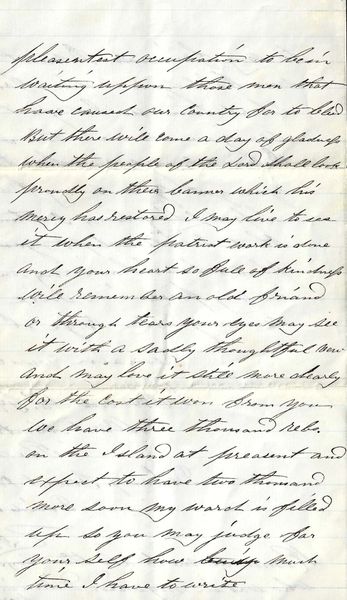 pleasentest occupation to be in
waiting uppon those men that
have caused our Country for to bled
But there will come a day of gladness
when the people of the Lord shall look
proudly on their banner which his
mercy has restored I may live to see
it when the patriot work is done
and your heart so full of kindness
will remember an old friand
or through tears your eyes may see
it with a sadly thoughtful vew
and may love it still more dearly
for the cost it won from you
We have three thousand rebs.
on the Island at preasent and
expect to have two thousand
more soon my ward is filled
up so you may judge for
your self how much
time I have to write